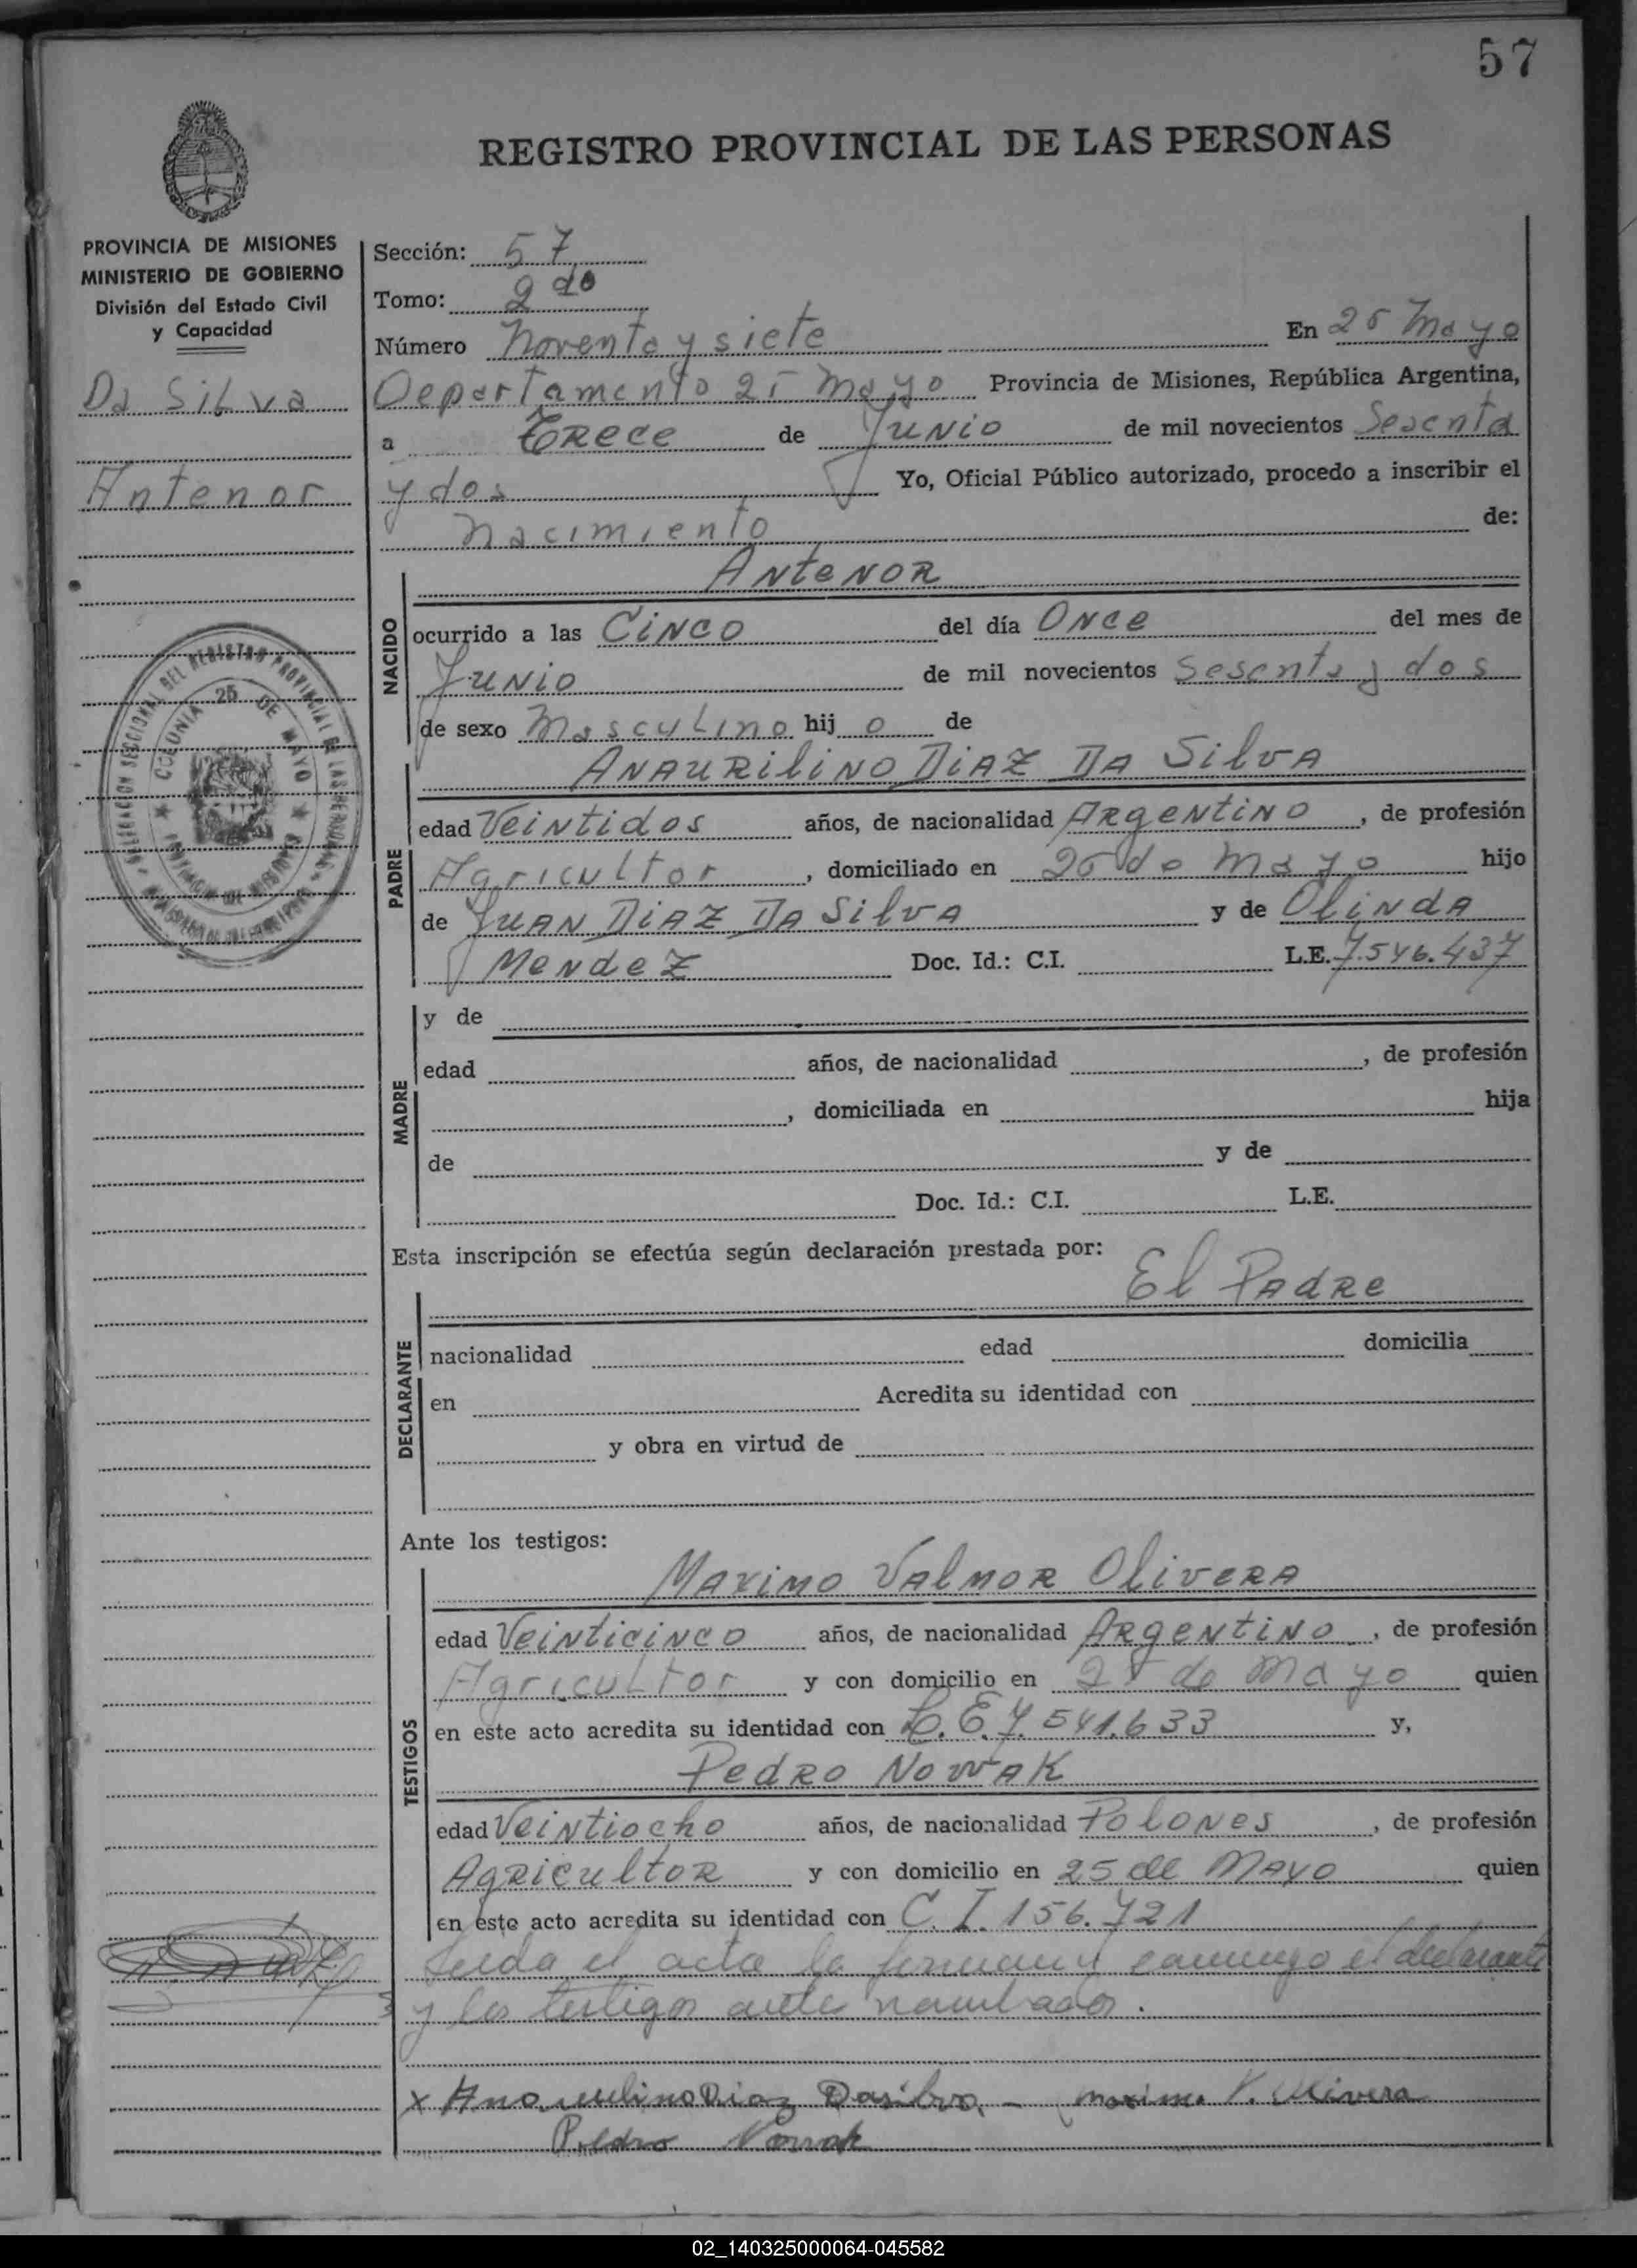 57
REGISTRO PROVINCIAL DE LAS PERSONAS
PROVINCIA DE MISIONES
MINISTERIO DE GOBIERNO
División del Estado Civil
y Capacidad
Da Silva
Antenor
DELEGACION SECCIONAL DEL REGISTRO PROVINCIAL DE LAS PERSONAS
COLONIA 25 DE MAYO
Sección: 57
Tomo: 2do
Número Noventa y siete En 25 Mayo
Departamento 25 Mayo Provincia de Misiones, República Argentina,
a Trece de Junio de mil novecientos Sesenta
y dos Yo, Oficial Público autorizado, procedo a inscribir el
Nacimiento de:
NACIDO
Antenor
ocurrido a las Cinco del día Once del mes de
Junio de mil novecientos Sesenta y dos
de sexo Masculino hijo de
PADRE
Anaurilino Diaz Da Silva
edad Veintidos años, de nacionalidad Argentino, de profesión
Agricultor, domiciliado en 25 de Mayo hijo
de Juan Diaz Da Silva y de Olinda
Mendez Doc. Id.: C.I. L.E. 7.546.437
MADRE
y de
edad años, de nacionalidad , de profesión
, domiciliada en hija
de y de
Doc. Id.: C.I. L.E.
Esta inscripción se efectúa según declaración prestada por:
El Padre
DECLARANTE
nacionalidad edad domicilia
en Acredita su identidad con
y obra en virtud de
Ante los testigos:
TESTIGOS
Maximo Valmor Olivera
edad Veinticinco años, de nacionalidad Argentino, de profesión
Agricultor y con domicilio en 25 de Mayo quien
en este acto acredita su identidad con L.E. 7.541.633 y,
Pedro Nowak
edad Veintiocho años, de nacionalidad Polones, de profesión
Agricultor y con domicilio en 25 de Mayo quien
en este acto acredita su identidad con C.I. 156.721
Leida el acta la firman conmigo el declarante
y los testigos antes nombrados.
x Anaurilino Diaz Dasilva. - Maximo V. Olivera
Pedro Nowak
02_140325000064-045582